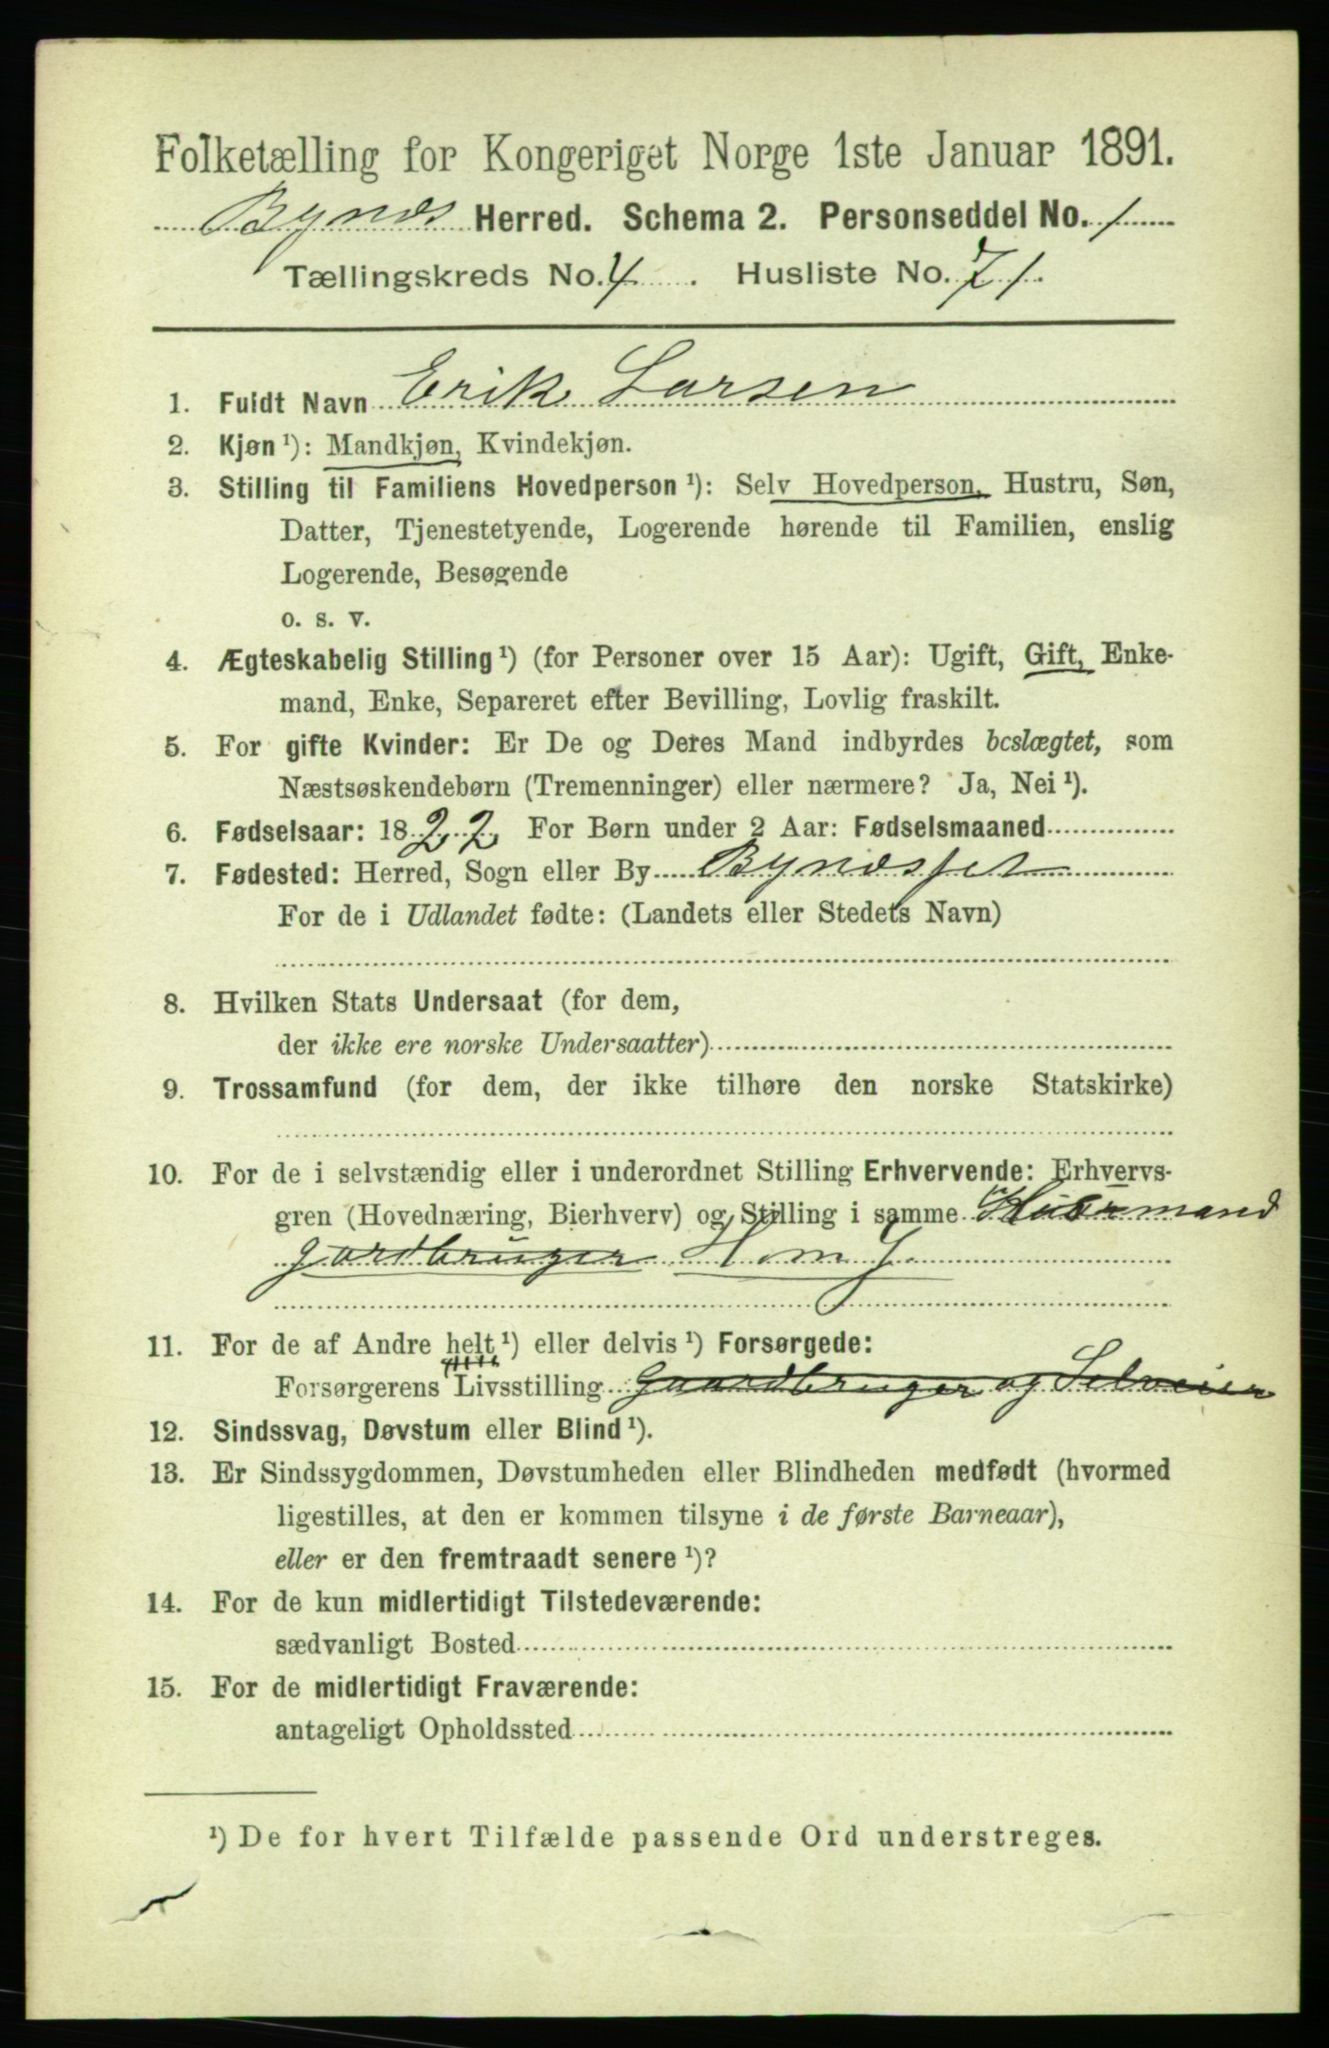 Folketælling for Kongeriget Norge 1ste Januar 1891.
Bynæs Herred. Schema 2. Personseddel No. 1
Tællingskreds No. 4. Husliste No. 71.
1. Fuldt Navn Erik Larsen
2. Kjøn ¹): Mandkjøn, Kvindekjøn.
3. Stilling til Familiens Hovedperson ¹): Selv Hovedperson, Hustru, Søn,
Datter, Tjenestetyende, Logerende hørende til Familien, enslig
Logerende, Besøgende
o. s. v.
4. Ægteskabelig Stilling ¹) (for Personer over 15 Aar): Ugift, Gift, Enke-
mand, Enke, Separeret efter Bevilling, Lovlig fraskilt.
5. For gifte Kvinder: Er De og Deres Mand indbyrdes beslægtet, som
Næstsøskendebørn (Tremenninger) eller nærmere? Ja, Nei ¹).
6. Fødselsaar: 1822 For Børn under 2 Aar: Fødselsmaaned
7. Fødested: Herred, Sogn eller By
For de i Udlandet fødte: (Landets eller Stedets Navn)
8. Hvilken Stats Undersaat (for dem,
der ikke ere norske Undersaatter)
9. Trossamfund (for dem, der ikke tilhøre den norske Statskirke)
10. For de i selvstændig eller i underordnet Stilling Erhvervende: Erhvervs-
gren (Hovednæring, Bierhverv) og Stilling i samme Husmand
gardbruger
11. For de af Andre helt ¹) eller delvis ¹) Forsørgede:
Forsørgerens Livsstilling Gaardbruger og Selveier
12. Sindssvag, Døvstum eller Blind ¹).
13. Er Sindssygdommen, Døvstumheden eller Blindheden medfødt (hvormed
ligestilles, at den er kommen tilsyne i de første Barneaar),
eller er den fremtraadt senere ¹)?
14. For de kun midlertidigt Tilstedeværende:
sædvanligt Bosted
15. For de midlertidigt Fraværende:
antageligt Opholdssted
¹) De for hvert Tilfælde passende Ord understreges.